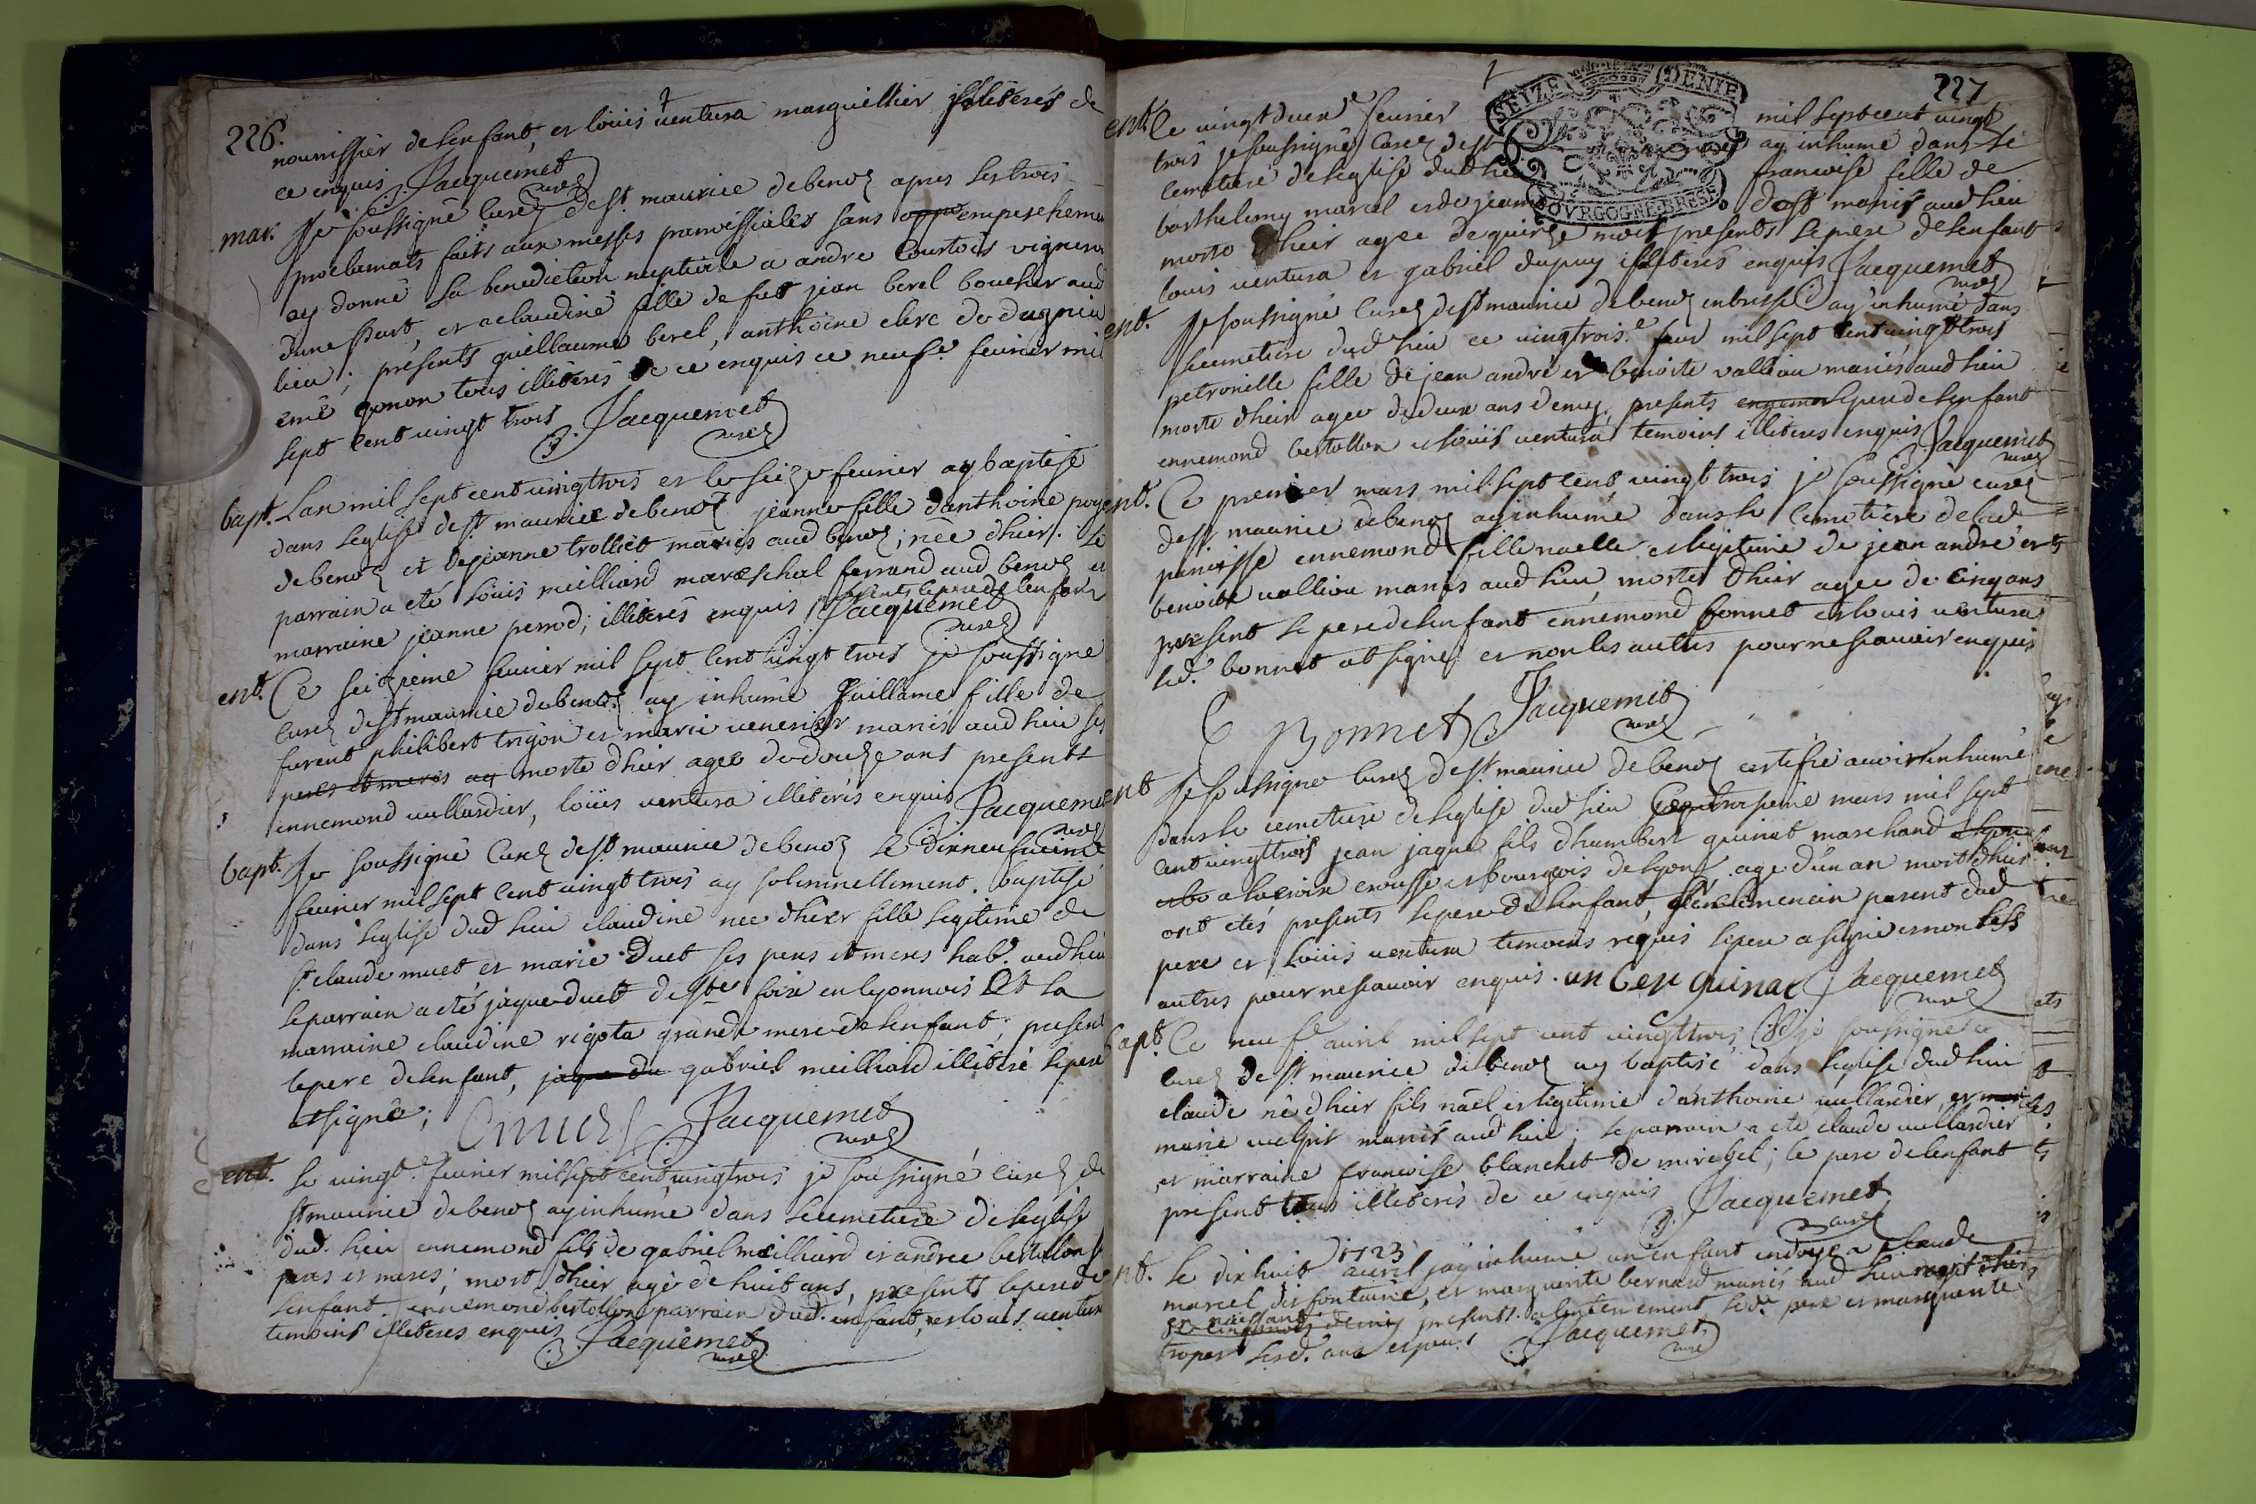 226.
nourissier de lenfant, et loüis ventura marguillier illiterés de
ce enquis Jacquemet
curez
mar. Je soussigné curez de st maurice de benoz apres les trois
proclamats faits aux messes parroissiales sans oppo empeschemen
ay donné la benediction nuptiale a andre Courtois vigneron
dune part, et a claudine fille de fut jean berel boucher aud
lieu; presents guillaume berel, anthoine clerc de dagnieu
emé gonon tous illiterés de ce enquis ce neufe fevrier mil
sept cent vingt trois Jacquemet
curez
bapt. Lan mil sept cent vingttrois et le seize fevrier ay baptisé
dans leglise de st maurice de benoz jeanne fille danthoine
de benoz et de jeanne trolliet mariés aud benoz; née dhier. le
parrain a eté loüis meilliard mareschal ferrand aud benoz et
presents le pere de lenfant
marraine jeanne perrod; illiterés enquis Jacquemet
curez
ent. Ce seizieme fevrier mil sept cent vingt trois je soussigné
curez de st maurice de benoz ay inhumé guillame fille de
furent philibert trigon et marie venerier mariés aud lieu ses
peres et meres ay morte dhier agee de douze ans presents
ennemond vullardier, loüis ventura illiterés enquis Jacquemet
curez
bapt. Je soussigné Curez de st maurice de benoz le dixneufvieme
fevrier mil sept cent vingt trois ay solemnellement baptisé
dans leglise dud lieu claudine née dhier fille legitime de
sr claude muet et marie duet ses peres et meres hab. aud lieu
le parrain a eté jaque duet de ste foix en lyonnois Et la
marraine claudine rigota grande mere de lenfant, presents
le pere de lenfant, jaque du gabriel meilliard illiteré le pere
a signé; Cmuet Jacquemet
curez
ent. Le vingt.e fevrier mil sept cent vingtrois je soussigné curez de
st maurice de benoz ay inhumé dans le cemetiere de leglise
dud. lieu ennemond fils de gabriel meilliard et andree bertollon
peres et meres; mort dhier agé de huit ans, presents le pere de
lenfant. ennemond bertollon parrain dud. enfant, et loüis ventura
temoins illiteres enquis Jacquemet
curez
227
SEIZE DENIE
BOVRGOGNE BRESSE
ent. Ce vingtdeuxe fevrier mil sept cent vingt
trois je soussigné Curez de st ay inhumé dans le
cemetiere de leglise dud lieu francoise fille de
barthelemy marcel et de jeanne dost mariés aud lieu
morte dhier agee de quinze mois presents le pere de lenfant
louis ventura et gabriel dupuy illiterés enquis Jacquemet
curez
ent. Je soussigné Curez de st maurice de benoz en bresse ay inhumé dans
le cemetiere dud lieu ce vingtrois.e feur mil sept cent vingttrois
petronille fille de jean andré et benoite vallion mariés aud lieu
morte dhier agee de deux ans demy. presents ennemon le pere de lenfant
ennemond bertollon et loüis ventura temoins illiteres enquis Jacquemet
curez
ent. Ce premier mars mil sept cent vingt trois je soussigné curez
de st maurice de benoz ay inhumé dans le cemetiere de lad
paroisse ennemond fille nalle et legitime de jean andré et
benoite vallion mariés aud lieu, morte dhier agee de cinq ans
present le pere de lenfant ennemond bonnet et louis ventura
led. bonnet at signé et non les autres pour ne scavoir enquis
E Bonnet Jacquemet
curez
ent Je soussigné curez de st maurice de benoz certifie avoir inhumé
dans le cemetiere de leglise dud lieu le mars mil sept
cent vingttrois jean jaque fils dhumbert guinat marchand
a la croix crousse et bourgeois de lyon agé dun an mort dhier
ont etés presents le pere de lenfant, parent dud
pere et loüis ventura temoins requis le pere a signé et non les
autres pour ne scavoir enquis. guinat Jacquemet
curez
bapt. Ce neufe avril mil sept cent vingttrois je soussigné
curez de st maurice de benoz ay baptisé dans leglise dud lieu
claude né dhier fils nael et legitime danthoine vullardier, et
marie mariés aud lieu; le parrain a eté claude vullardier
et marraine francoise blanchet de miribel; le pere de lenfant
present tous illiterés de ce enquis Jacquemet
curez
1723
ent. Le dix huit avril jay inhumé un enfant ondoyé a claude
marcel dis fontaine, et marguerite bernard mariés aud lieu mort dhier
en naissant
presents a lenterrement led. pere et marguerite
Jacquemet
curez